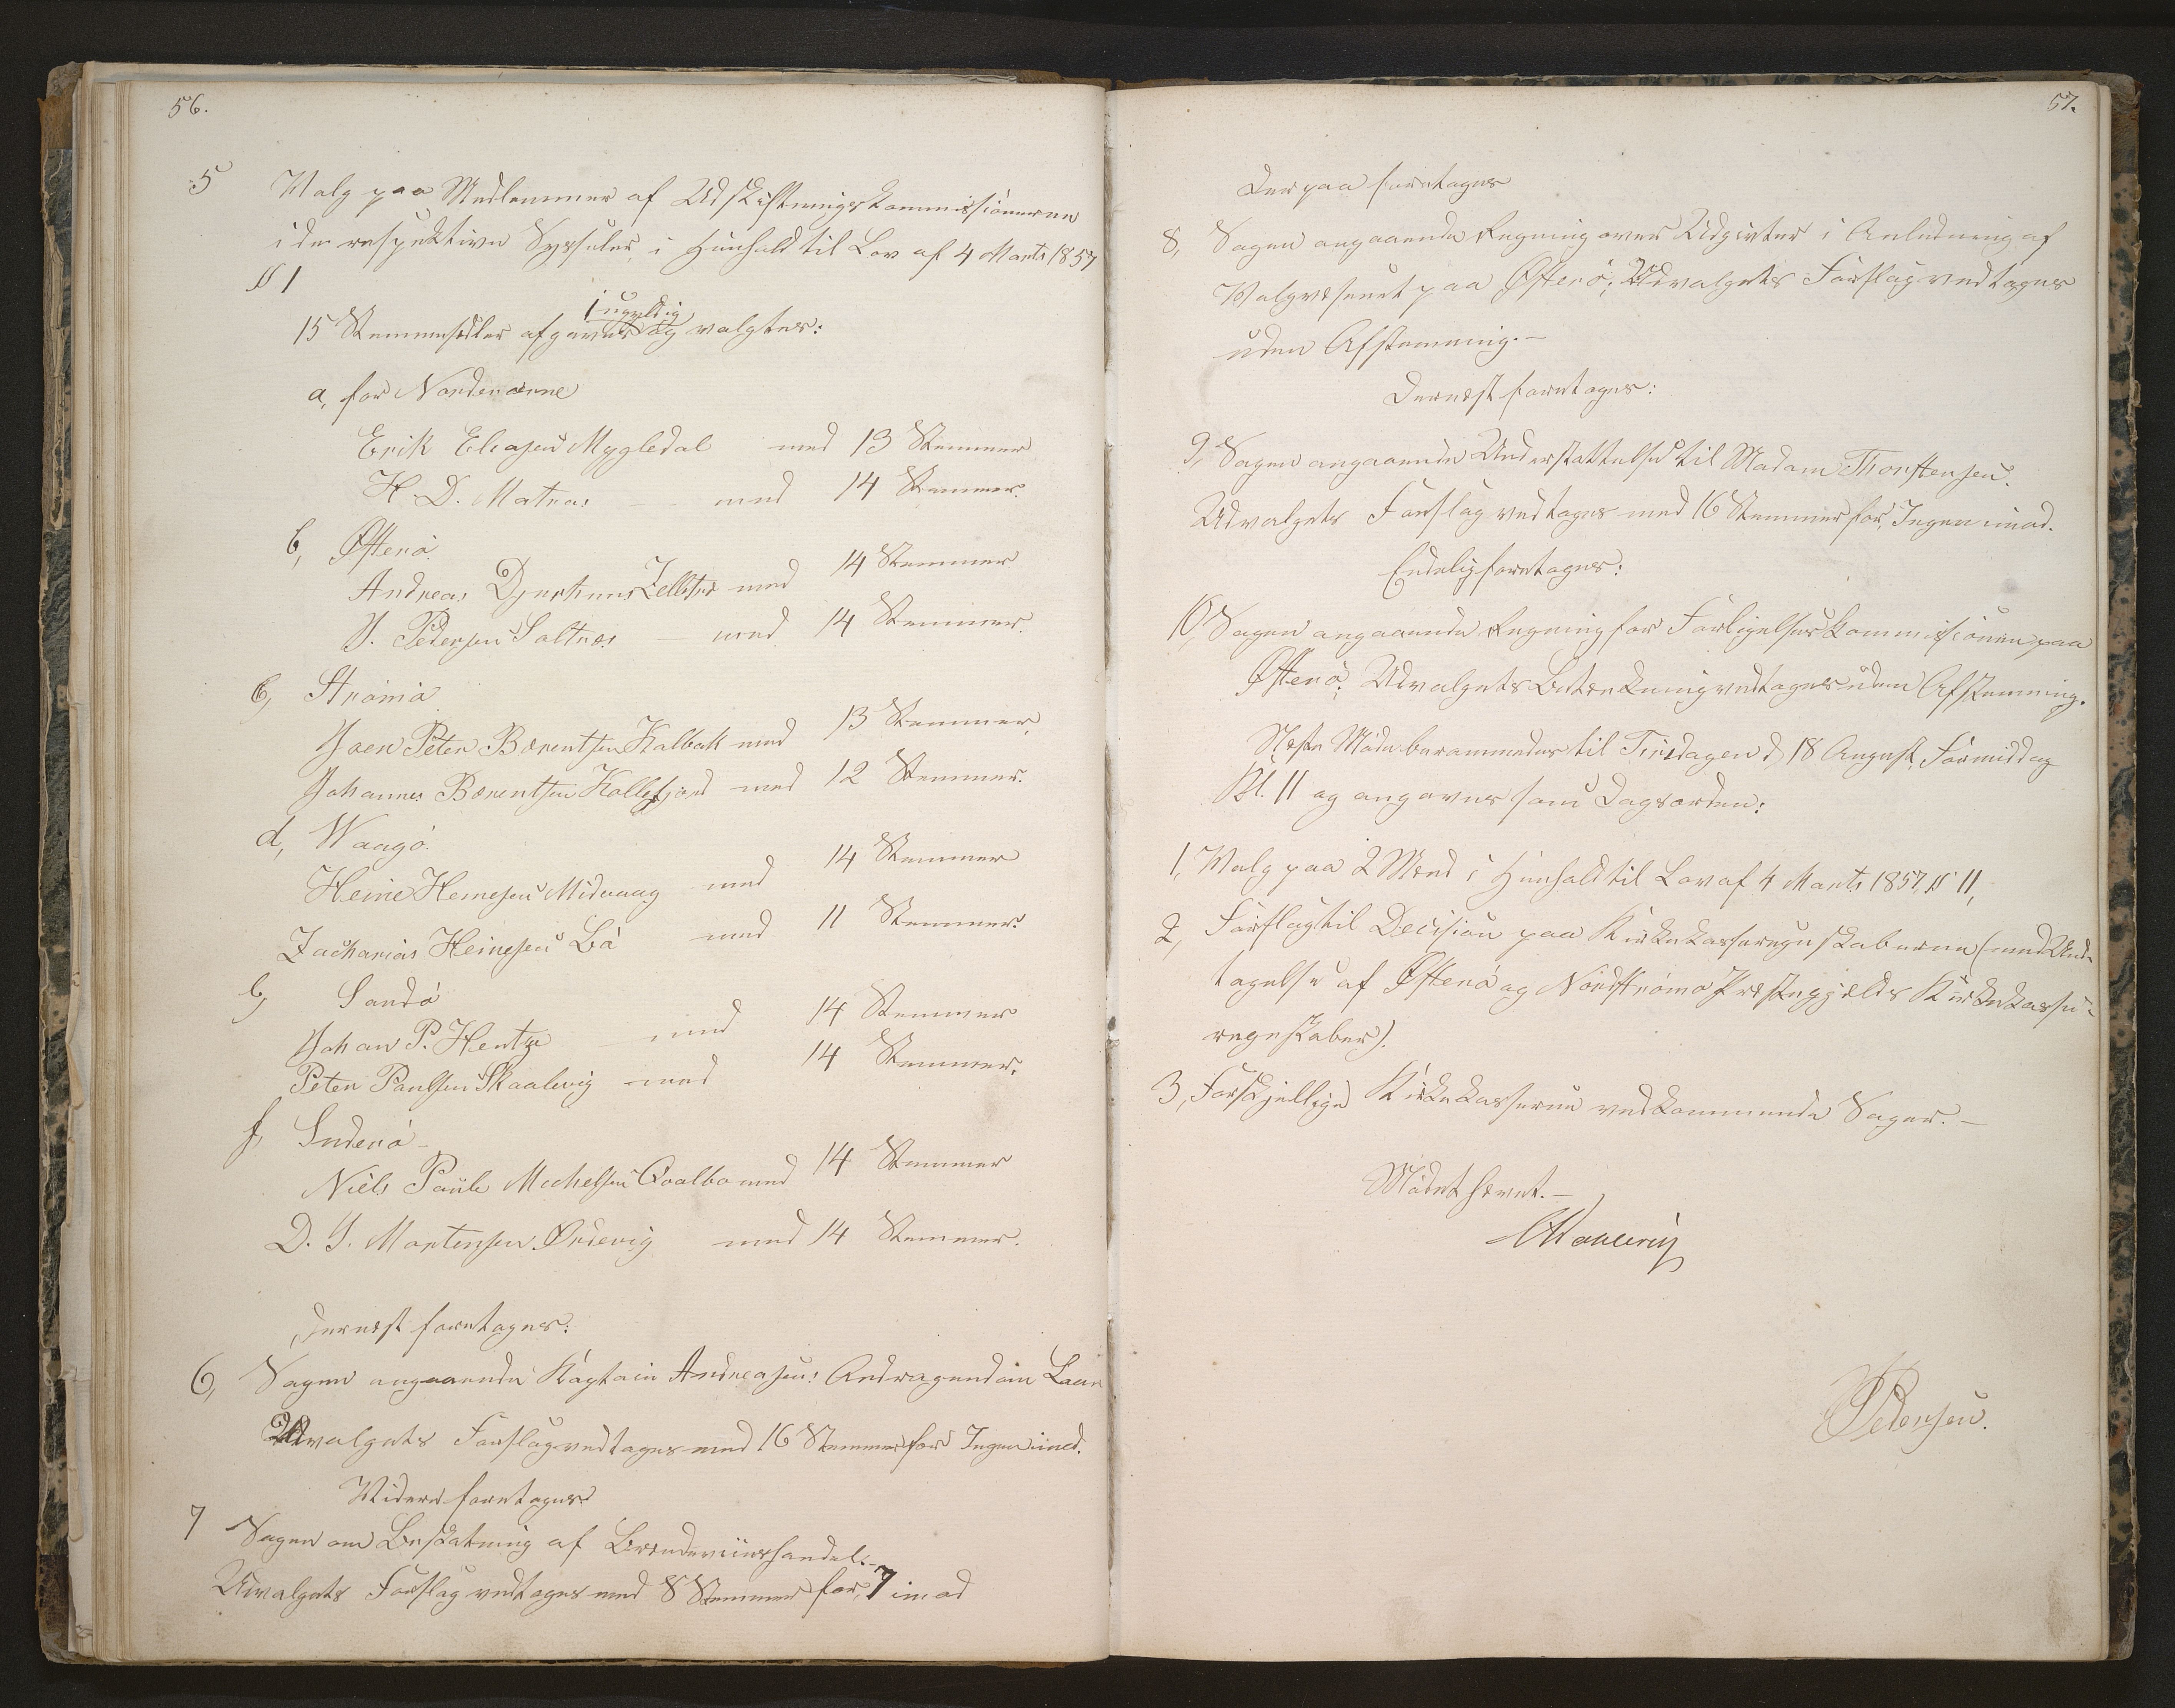 56.
5 Valg paa Medlemmer af Udskiftningskommissionerne
i de respektive Sysseler, i Henhold til Lov af 4 Marts 1857
§ 1
1 ugyldig
15 Stemmesedler afgaves og valgtes:
a, for Norderøerne
Erik Eliasen Mygledal med 13 Stemmer
H. D. Matras med 14 Stemmer.
b, Østerø.
Andreas Djurhuus Zellètræ med 14 Stemmer
J. Pedersen Saltnæs med 14 Stemmer.
c, Strømø.
Joen Peter Bærentsen Kalbak med 13 Stemmer,
Johannes Bærentsen Kollefjord med 12 Stemmer.
d, Waagø.
Heine Heinesen Midvaag med 14 Stemmer
Zacharias Heinesen Bø med 11 Stemmer.
e, Sandø
Johan P. Hentze med 14 Stemmer
Peter Paulsen Skaalevig med 14 Stemmer.
f, Suderø -
Niels Poule Michelsen Qvalbø med 14 Stemmer
D. J. Mortensen Ørdevig med 14 Stemmer.
Dernæst foretages:
6, Sagen angaaende Kaptain Andreasens Andragende om Laan
Udvalgets Forslag vedtages med 16 Stemmer for Ingen imod.
Videre foretages
7 Sagen om Beskatning af Brændeviinshandel.-
Udvalgets Forslag vedtages med 8 Stemmer for, 7 imod
57.
Derpaa foretages
8, Sagen angaaende Regning over Udgivter i Anledning af
Valgvæsenet paa Østerø; Udvalgets Forslag vedtages
uden Afstemning. -
Dernæst foretages:
9, Sagen angaaende Understøttelse til Madam Thorstensen.
Udvalgets Forslag vedtages med 16 Stemmer for, Ingen imod.
Endelig foretages:
10, Sagen angaaende Regning for Forligelseskommissionen paa
Østerø; Udvalgets Betænkning vedtages uden Afstemning.
Næste Møde berammedes til Tirsdagen d, 18 August, Formiddag
Kl. 11 og angaves som Dagsorden:
1, Valg paa 2 Mænd i Henhold til Lov af 4 Marts 1857, § 11,
2, Forslag til Decision paa Kirkekasseregnskaberne (med Und-
tagelse af Østerø og Nordstrømø Præstegjelds Kirkekasse-
regnskaber).
3, Forskjellige Kirkekasserne vedkommende Sager. -
Mødet hævet. -
Pedersen.